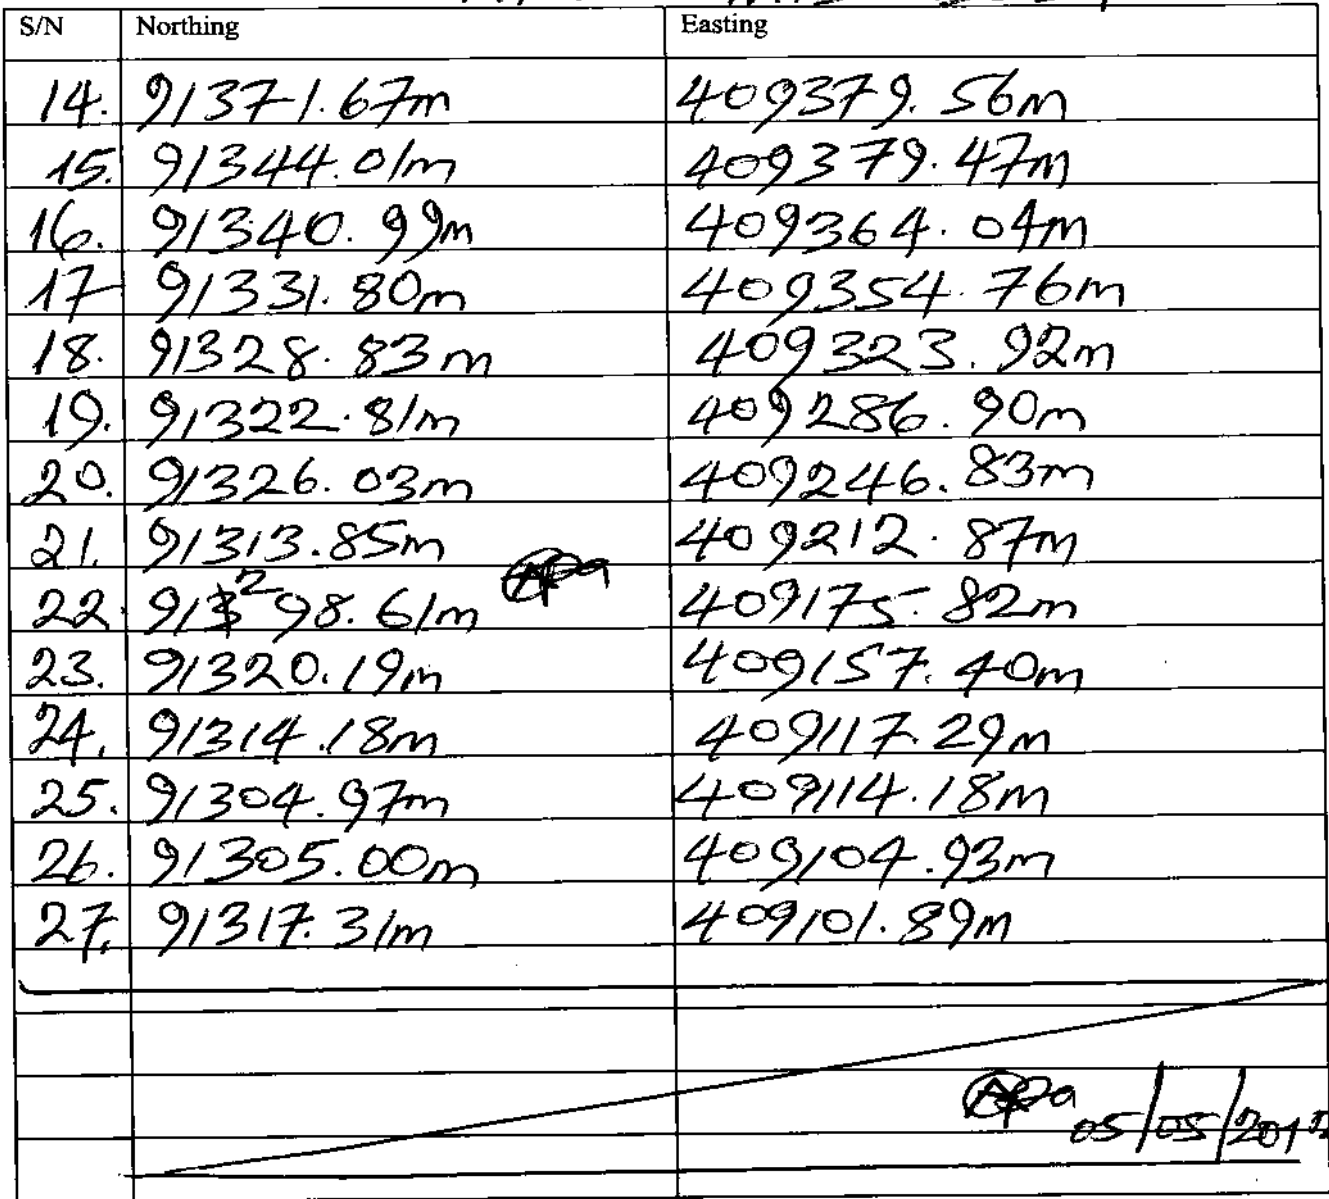 S/N Northing Easting
14. 91371.67m 409379.56m
15. 91344.01m 409379.47m
16. 91340.99m 409364.04m
17 91331.80m 409354.76m
18. 91328.83m 409323.92m
19. 91322.81m 409286.90m
20. 91326.03m 409246.83m
21. 91313.85m 409212.87m
22. 91298.61m 409175.82m
23. 91320.19m 409157.40m
24. 91314.18m 409117.29m
25. 91304.97m 409114.18m
26. 91305.00m 409104.93m
27. 91317.31m 409101.89m
05/05/201